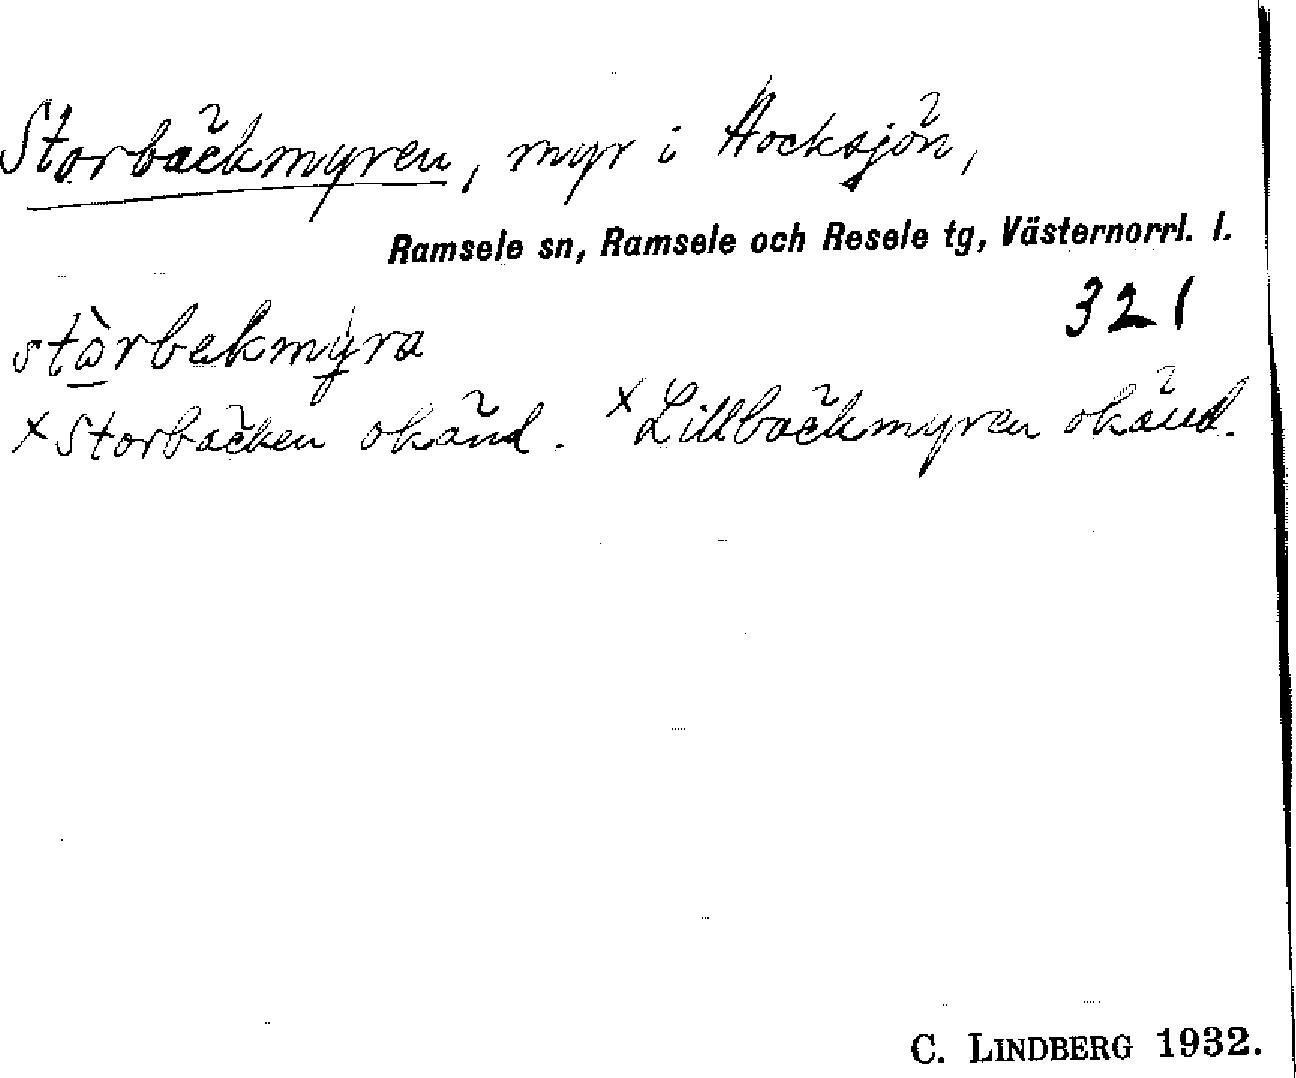 Storbäckmyren, myr i Hocksjön,
Ramsele sn, Ramsele och Resele tg, Västernorrl. l.
321
stòrbekmyra
× Storbäcken okänd. × Lillbäckmyren okänd.
C. LINDBERG 1932.